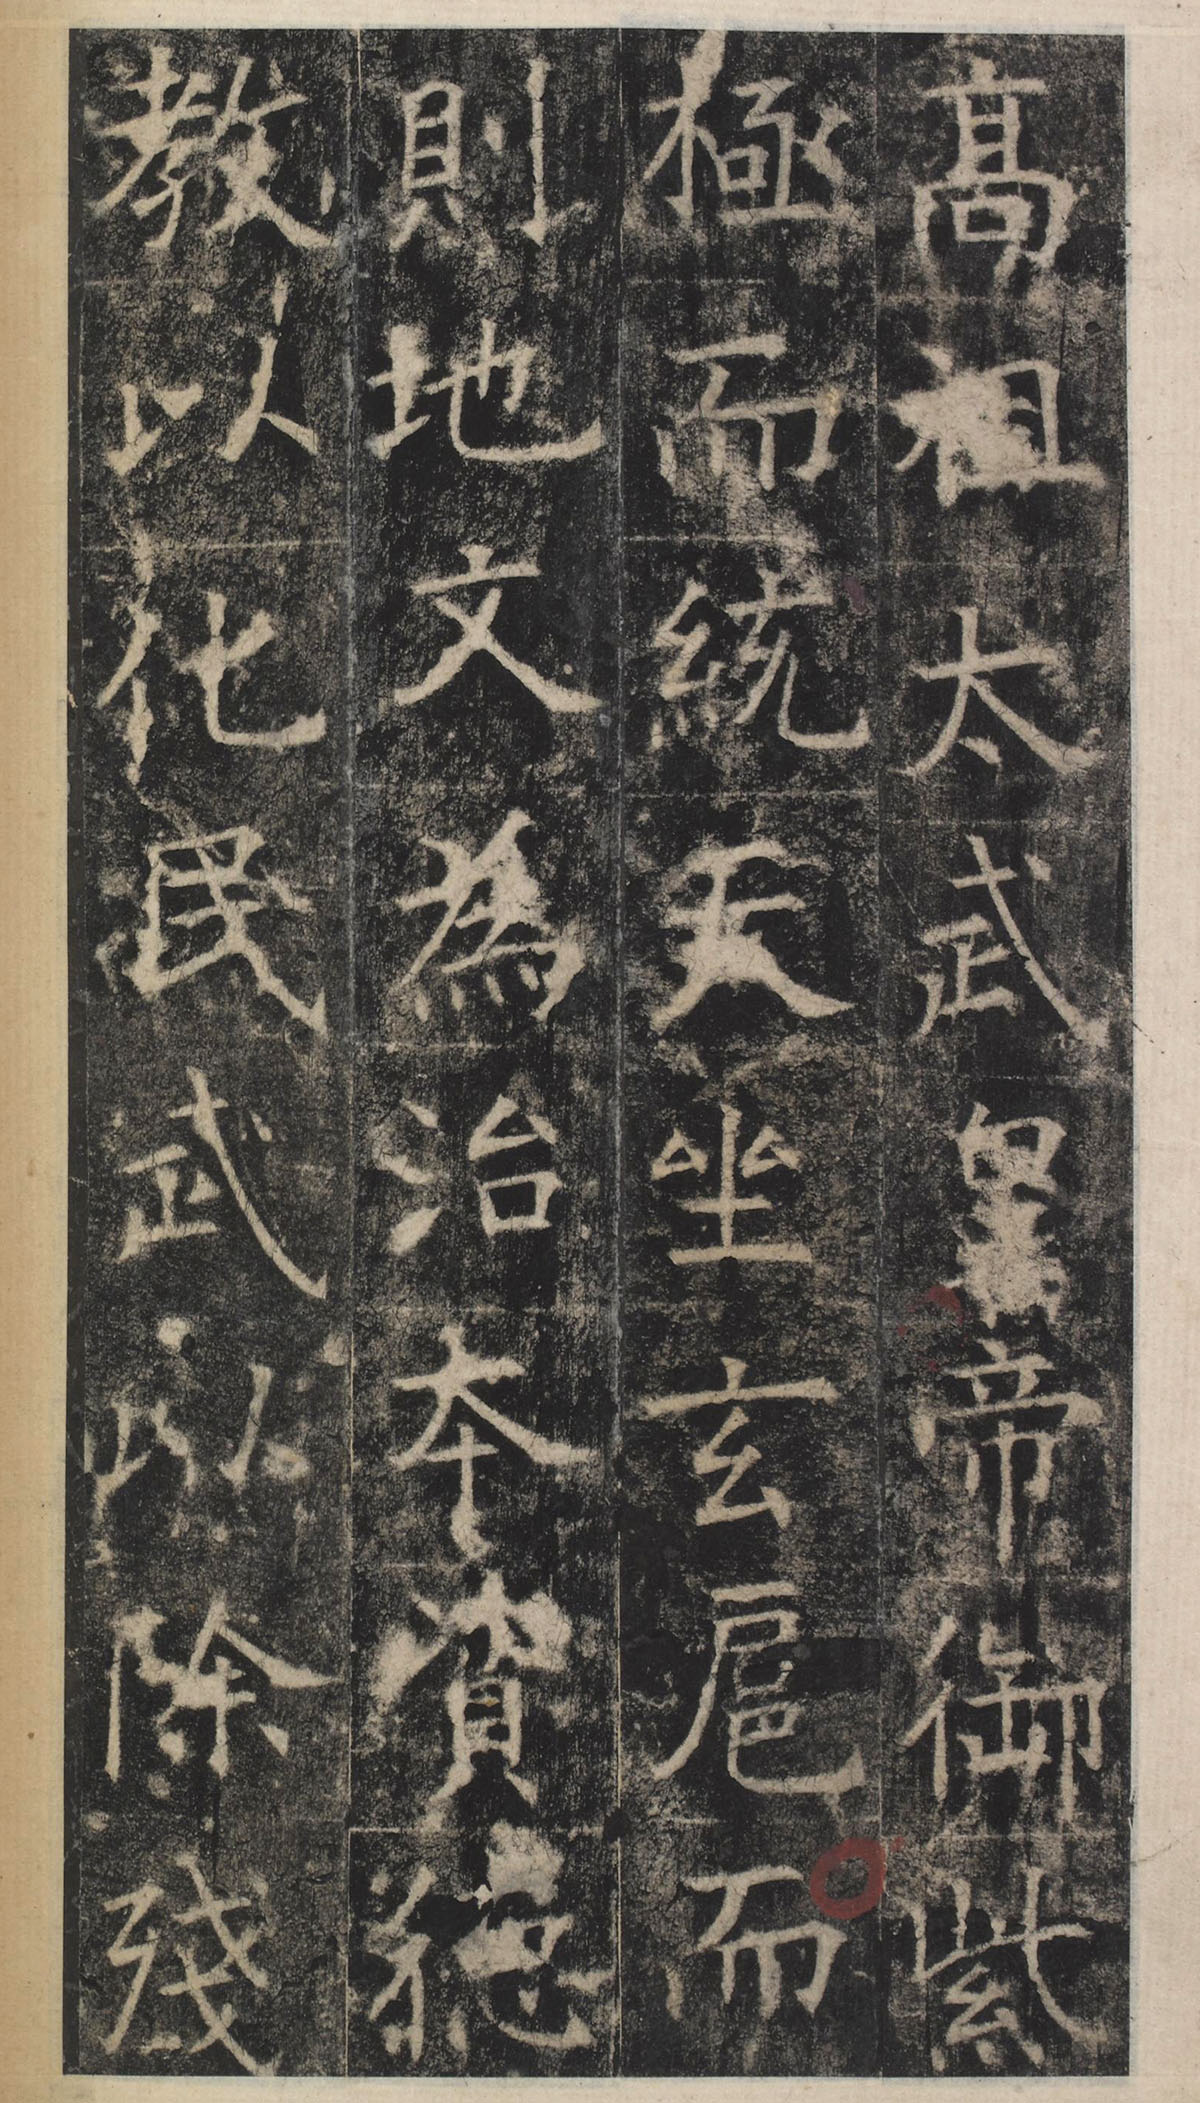 高祖太武皇帝御紫
極而統天坐玄扈而
則地文為治本資
教以化民武以除殘